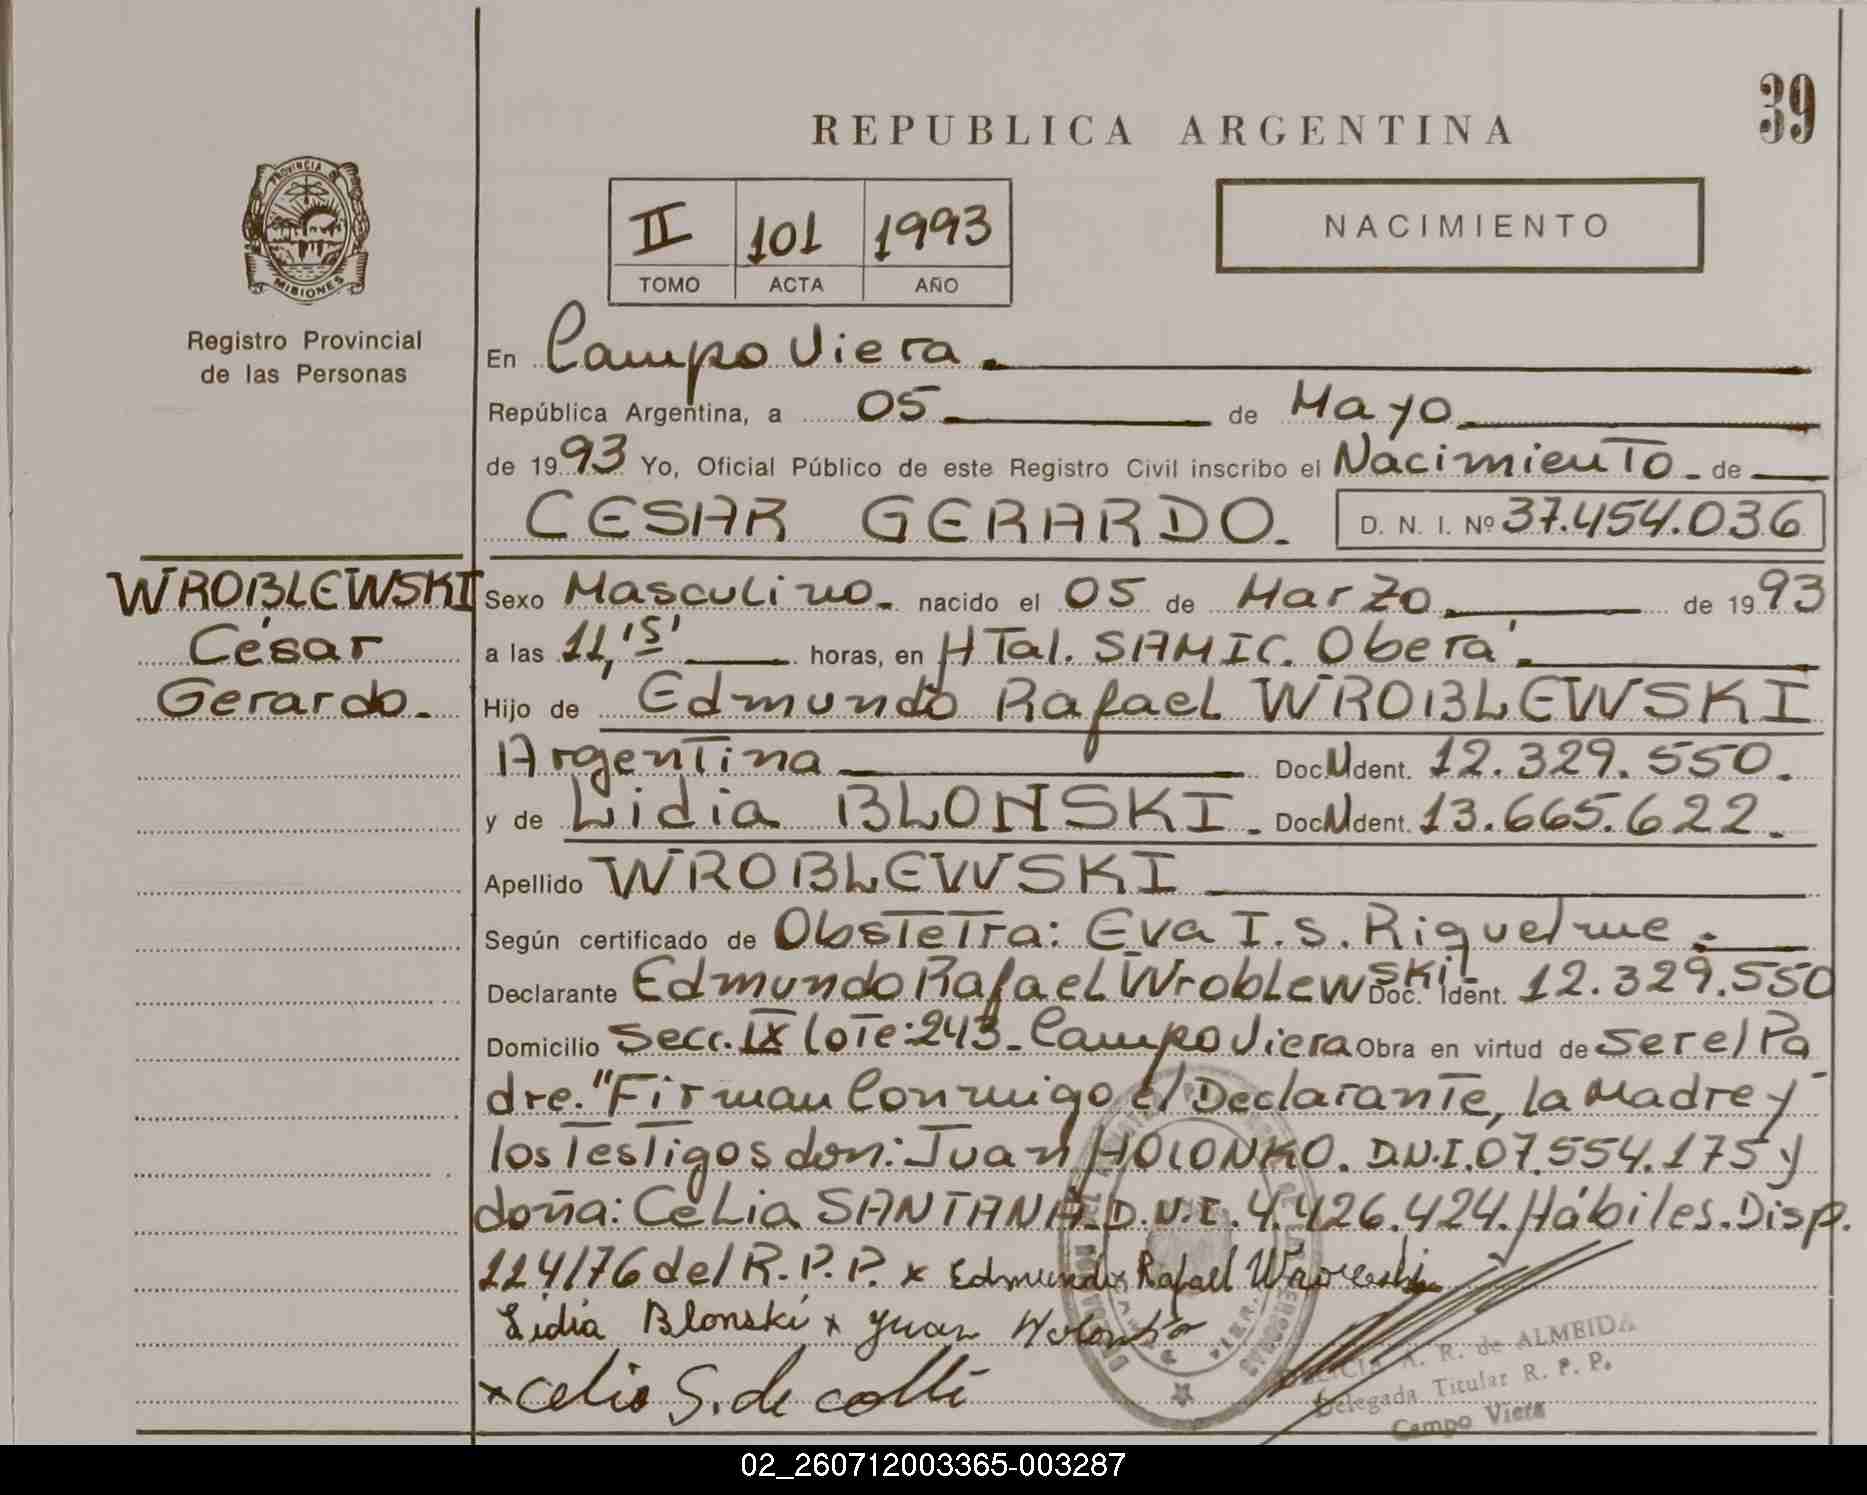 39
REPUBLICA ARGENTINA
PROVINCIA DE
MISIONES
Registro Provincial
de las Personas
II 101 1993
TOMO ACTA AÑO
NACIMIENTO
En Campo Viera.
República Argentina, a 05 de Mayo
de 1993 Yo, Oficial Público de este Registro Civil inscribo el Nacimiento de
CESAR GERARDO. D. N. I. Nº 37.454.036
WROBLEWSKI
César
Gerardo.
Sexo Masculino. nacido el 05 de Marzo de 1993
a las 11,'15' horas, en HTal. SAMIC. Oberá.
Hijo de Edmundo Rafael WROBLEWSKI
Argentina Doc. Ident. 12.329.550.
y de Lidia BLONSKI. Doc. Ident. 13.665.622.
Apellido WROBLEWSKI
Según certificado de Obstetra: Eva I. S. Riquelme.
Declarante Edmundo Rafael Wroblewski Doc. Ident. 12.329.550
Domicilio Secc. IX lote: 243- Campo Viera Obra en virtud de ser el Pa
dre. "Firman Conmigo el Declarante, la Madre y
los Testigos don: Juan HOLONKO. D.N.I. 07.554.175 y
doña: Celia SANTANA. D.N.I. 4.426.424. Hábiles. Disp.
114/76 del R.P.P. x Edmundo Rafael
Lidia Blonski x Juan
x Celia S. de
A. R. de ALMEIDA
Delegada Titular R. P. P.
Campo Viera
02_260712003365-003287